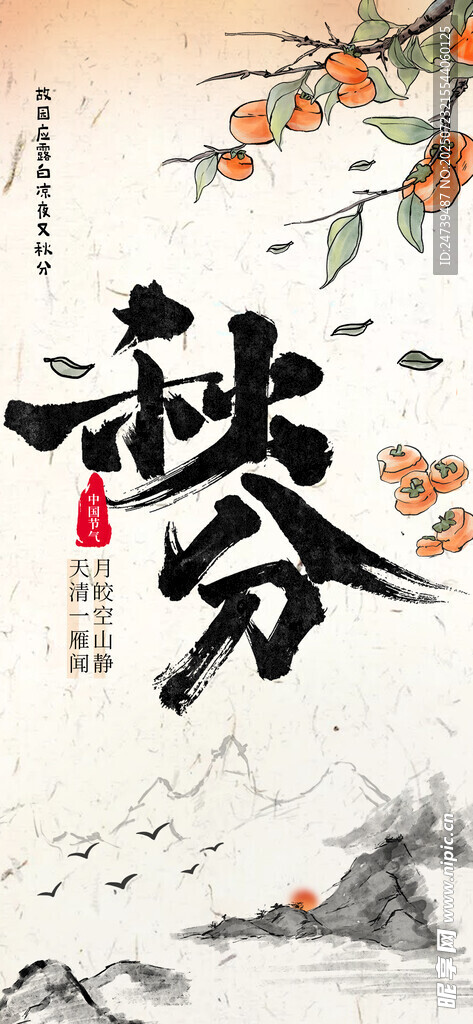 故园应露白凉夜又秋分
秋分
中国节气
月皎空山静
天清一雁闻
ID:24739487 NO.20250723215544060125
昵享网 www.nipic.cn